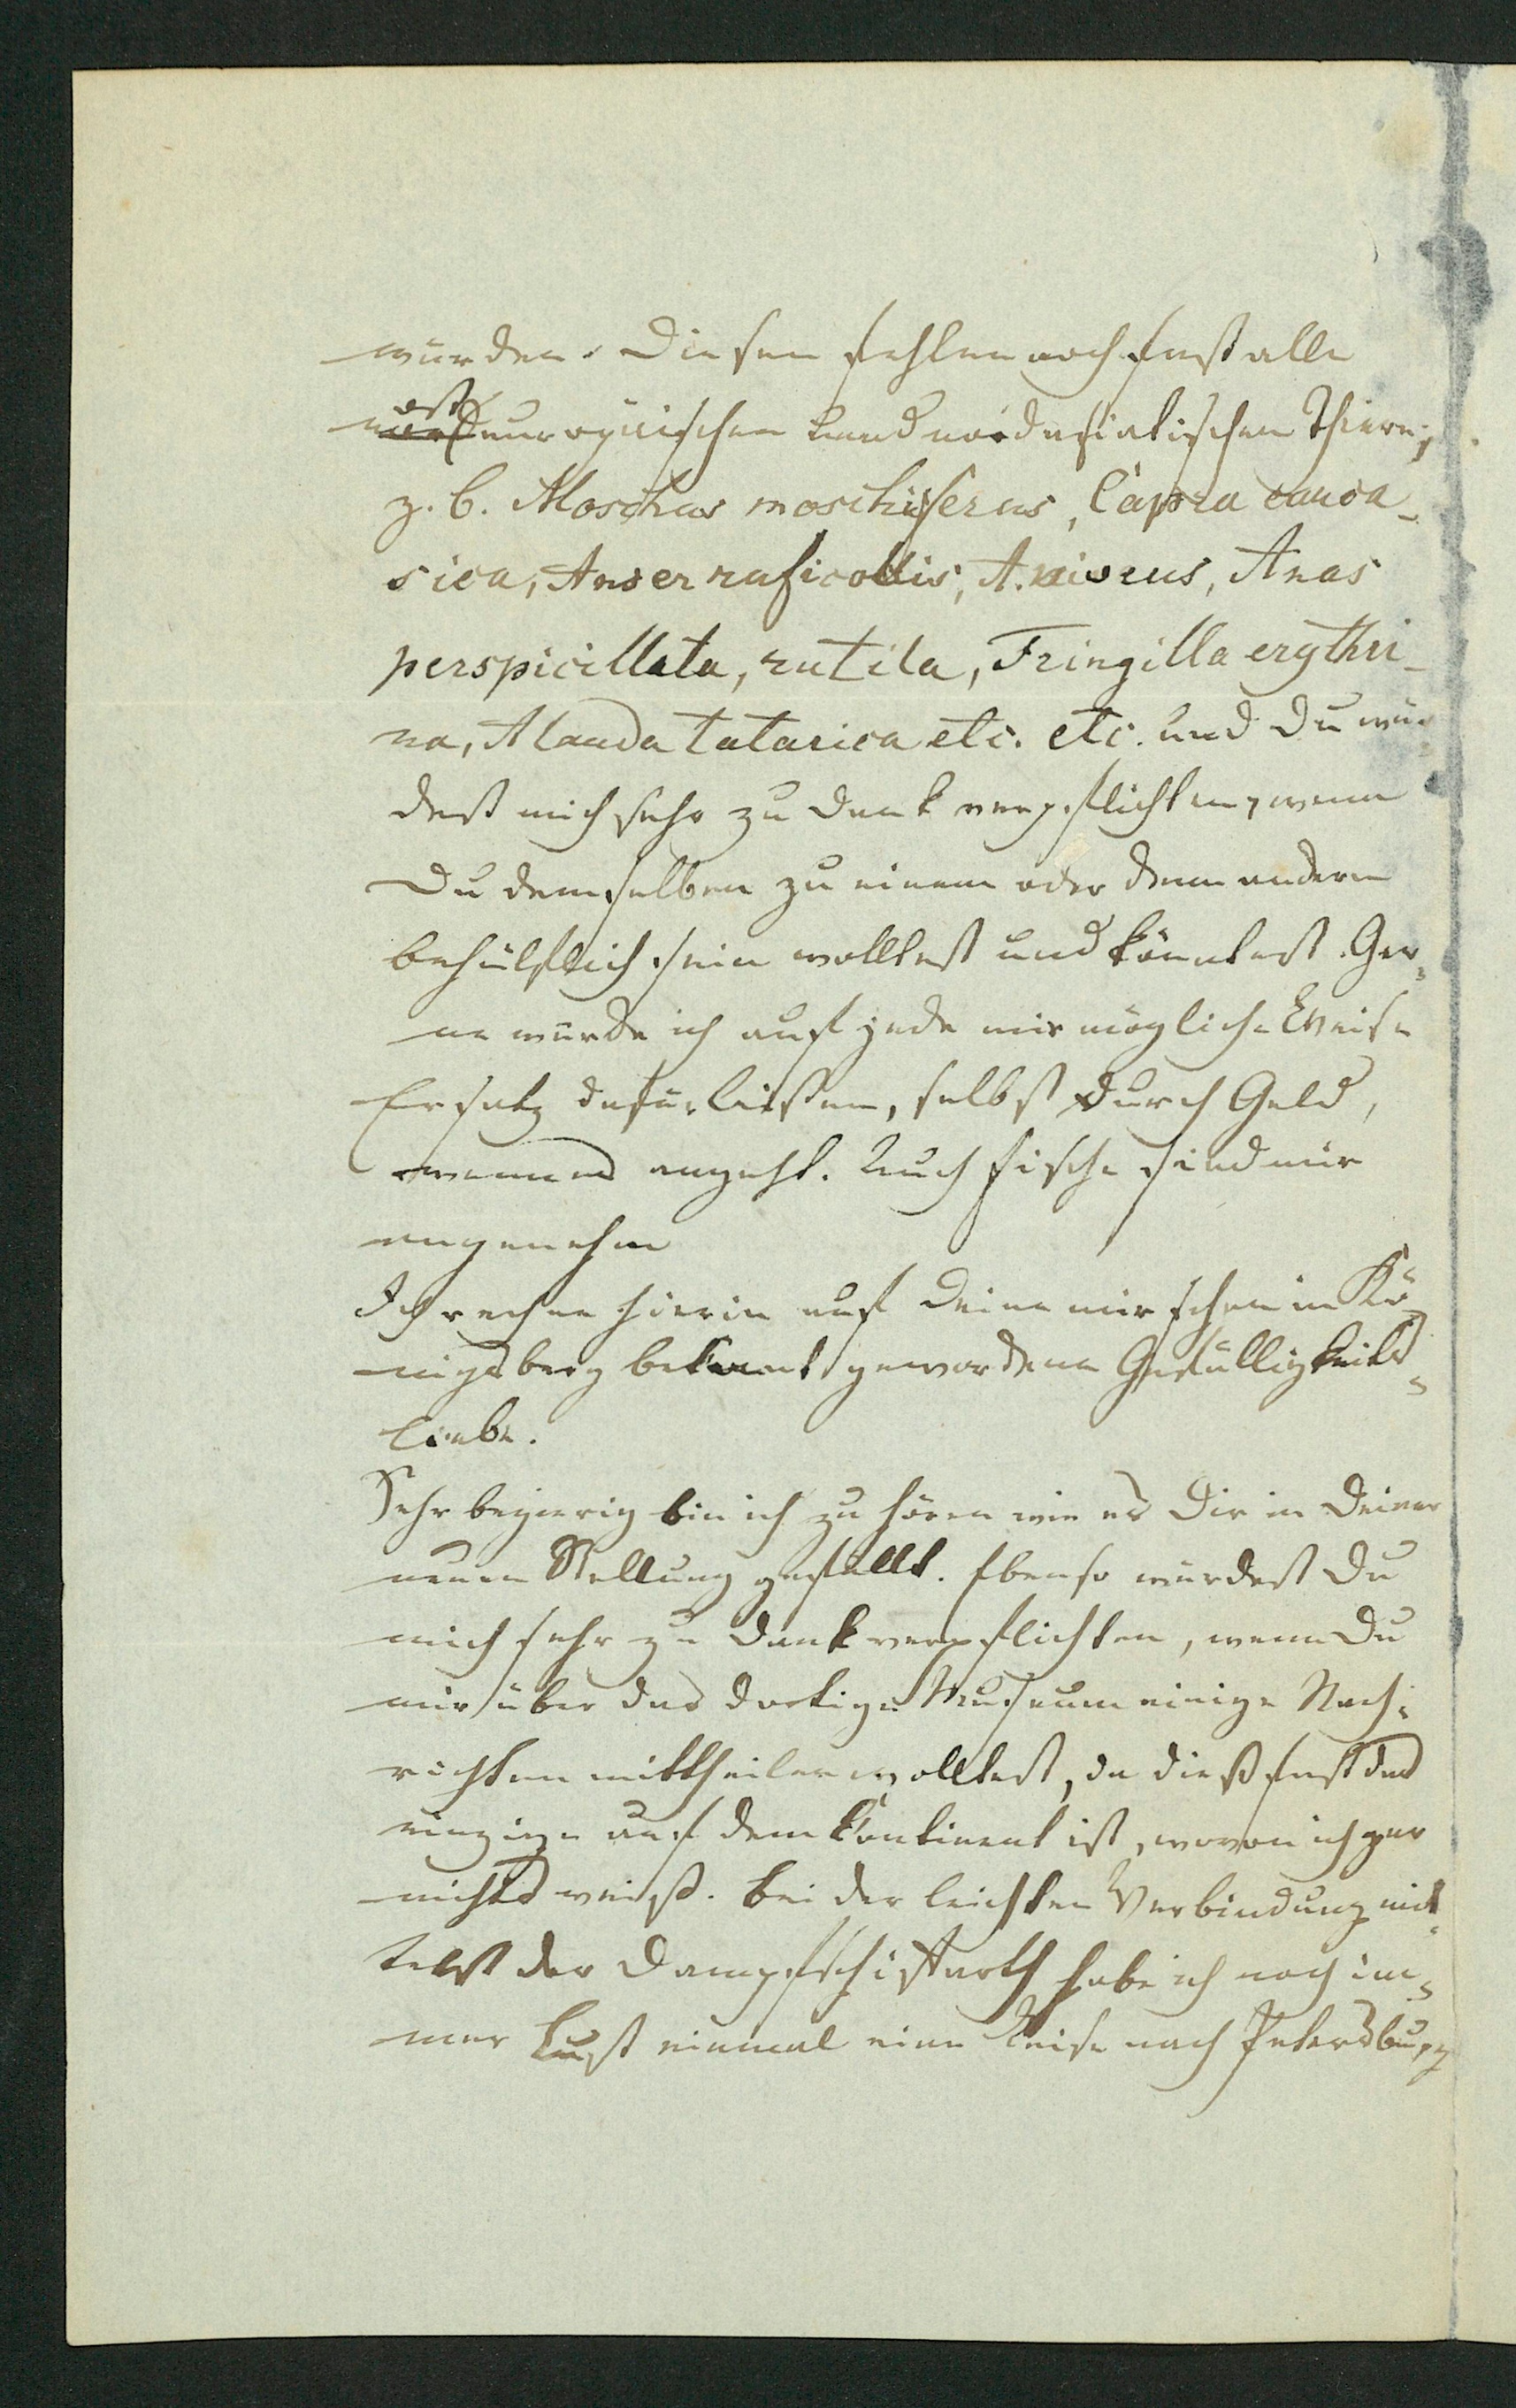 wurden. Diesem fehlen noch fast alle
ost
nordeuropäischen und nordasiatischen Thiere,
z. B. Moschus moschiferus, Capra cauca-
sica, Anser ruficollis, A. niveus, Anas
perspicillata, rutila, Fringilla erythri-
na, Alauda tatarica etc. etc. und Du wür-
dest mich sehr zu Dank verpflichten, wenn
Du demselben zu einem oder dem andern
behülflich sein wolltest und könntest. Ger-
ne würde ich auf jede mir mögliche Weise
Ersatz dafür leisten, selbst durch Geld,
wenn es angeht. Auch Fische sind mir
angenehm
Ich rechne hierin auf Deine mir schon in Kö-
nigsberg bekannt gewordene Gefälligkeits-
liebe.
Sehr begierig bin ich zu hören wie es Dir in Deiner
neuen Stellung gefällt. Ebenso würdest Du
mich sehr zu Dank verpflichten, wenn Du
mir über das dortige Museum einige Nach-
richten mittheilen wolltest, da dieß fast das
einzige auf dem Continent ist, wovon ich gar
nichts weiß. Bei der leichten Verbindung mit-
telst der Dampfschiffarth habe ich noch im-
mer Lust einmal eine Reise nach Petersburg